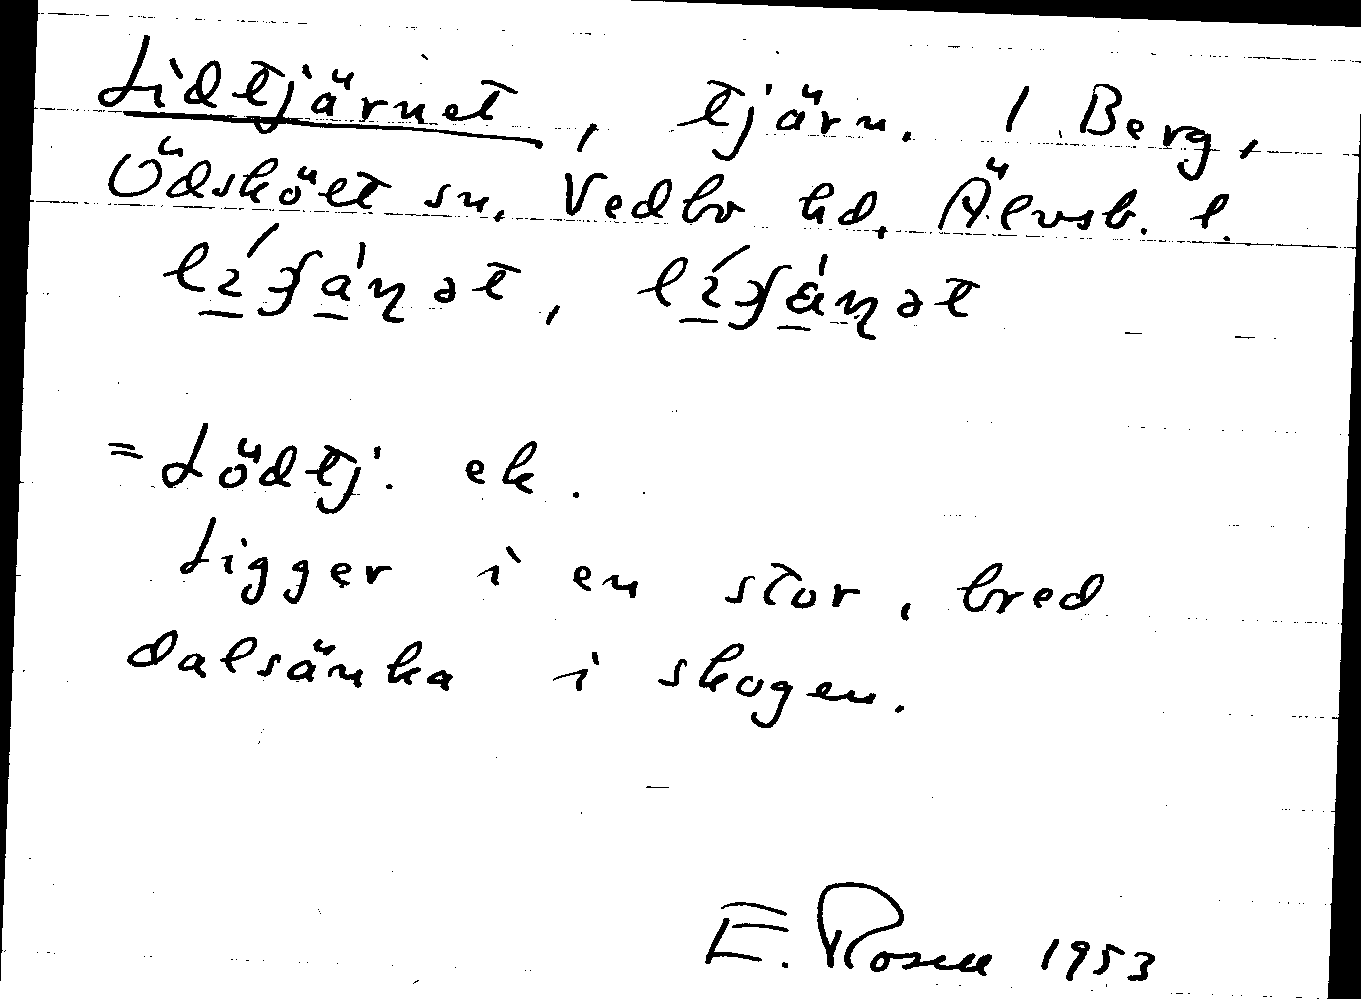 Lidtjärnet, tjärn. 1 Berg,
Ödskölt sn. Vedbo hd. Älvsb. l.
= Lödtj. ek.
Ligger i en stor, bred
dalsänka i skogen.
E. Rosell 1953